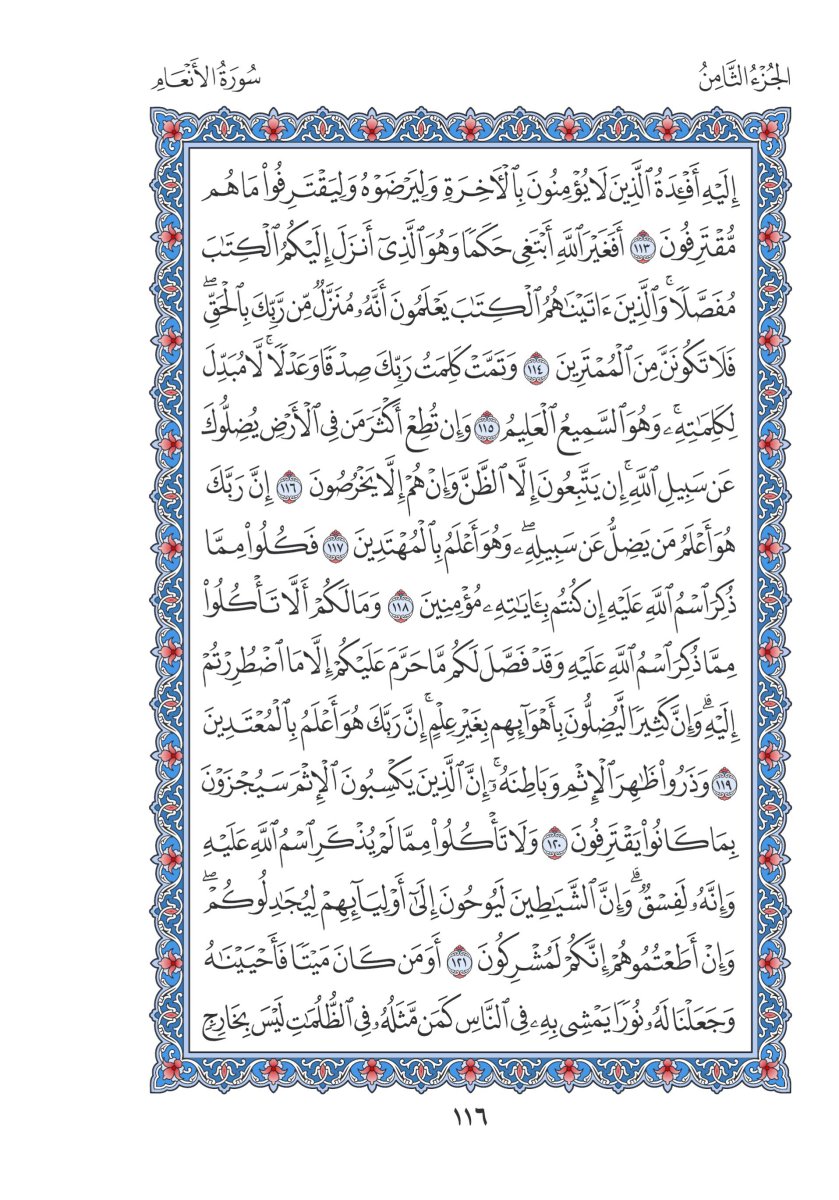 الجُزْءُ الثَّامِنُ
سُورَةُ الأَنْعَامِ
إِلَيْهِ أَفْـِٔدَةُ ٱلَّذِينَ لَا يُؤْمِنُونَ بِٱلْأٓخِرَةِ وَلِيَرْضَوْهُ وَلِيَقْتَرِفُوا۟ مَا هُم
مُّقْتَرِفُونَ ١١٣ أَفَغَيْرَ ٱللَّهِ أَبْتَغِى حَكَمًا وَهُوَ ٱلَّذِىٓ أَنزَلَ إِلَيْكُمُ ٱلْكِتَٰبَ
مُفَصَّلًا ۚ وَٱلَّذِينَ ءَاتَيْنَٰهُمُ ٱلْكِتَٰبَ يَعْلَمُونَ أَنَّهُۥ مُنَزَّلٌ مِّن رَّبِّكَ بِٱلْحَقِّ ۖ
فَلَا تَكُونَنَّ مِنَ ٱلْمُمْتَرِينَ ١١٤ وَتَمَّتْ كَلِمَتُ رَبِّكَ صِدْقًا وَعَدْلًا ۚ لَّا مُبَدِّلَ
لِكَلِمَٰتِهِۦ ۚ وَهُوَ ٱلسَّمِيعُ ٱلْعَلِيمُ ١١٥ وَإِن تُطِعْ أَكْثَرَ مَن فِى ٱلْأَرْضِ يُضِلُّوكَ
عَن سَبِيلِ ٱللَّهِ ۚ إِن يَتَّبِعُونَ إِلَّا ٱلظَّنَّ وَإِنْ هُمْ إِلَّا يَخْرُصُونَ ١١٦ إِنَّ رَبَّكَ
هُوَ أَعْلَمُ مَن يَضِلُّ عَن سَبِيلِهِۦ ۖ وَهُوَ أَعْلَمُ بِٱلْمُهْتَدِينَ ١١٧ فَكُلُوا۟ مِمَّا
ذُكِرَ ٱسْمُ ٱللَّهِ عَلَيْهِ إِن كُنتُم بِـَٔايَٰتِهِۦ مُؤْمِنِينَ ١١٨ وَمَا لَكُمْ أَلَّا تَأْكُلُوا۟
مِمَّا ذُكِرَ ٱسْمُ ٱللَّهِ عَلَيْهِ وَقَدْ فَصَّلَ لَكُم مَّا حَرَّمَ عَلَيْكُمْ إِلَّا مَا ٱضْطُرِرْتُمْ
إِلَيْهِ ۗ وَإِنَّ كَثِيرًا لَّيُضِلُّونَ بِأَهْوَآئِهِم بِغَيْرِ عِلْمٍ ۚ إِنَّ رَبَّكَ هُوَ أَعْلَمُ بِٱلْمُعْتَدِينَ
١١٩ وَذَرُوا۟ ظَٰهِرَ ٱلْإِثْمِ وَبَاطِنَهُۥٓ ۚ إِنَّ ٱلَّذِينَ يَكْسِبُونَ ٱلْإِثْمَ سَيُجْزَوْنَ
بِمَا كَانُوا۟ يَقْتَرِفُونَ ١٢٠ وَلَا تَأْكُلُوا۟ مِمَّا لَمْ يُذْكَرِ ٱسْمُ ٱللَّهِ عَلَيْهِ
وَإِنَّهُۥ لَفِسْقٌ ۗ وَإِنَّ ٱلشَّيَٰطِينَ لَيُوحُونَ إِلَىٰٓ أَوْلِيَآئِهِمْ لِيُجَٰدِلُوكُمْ ۖ
وَإِنْ أَطَعْتُمُوهُمْ إِنَّكُمْ لَمُشْرِكُونَ ١٢١ أَوَمَن كَانَ مَيْتًا فَأَحْيَيْنَٰهُ
وَجَعَلْنَا لَهُۥ نُورًا يَمْشِى بِهِۦ فِى ٱلنَّاسِ كَمَن مَّثَلُهُۥ فِى ٱلظُّلُمَٰتِ لَيْسَ بِخَارِجٍ
١١٦